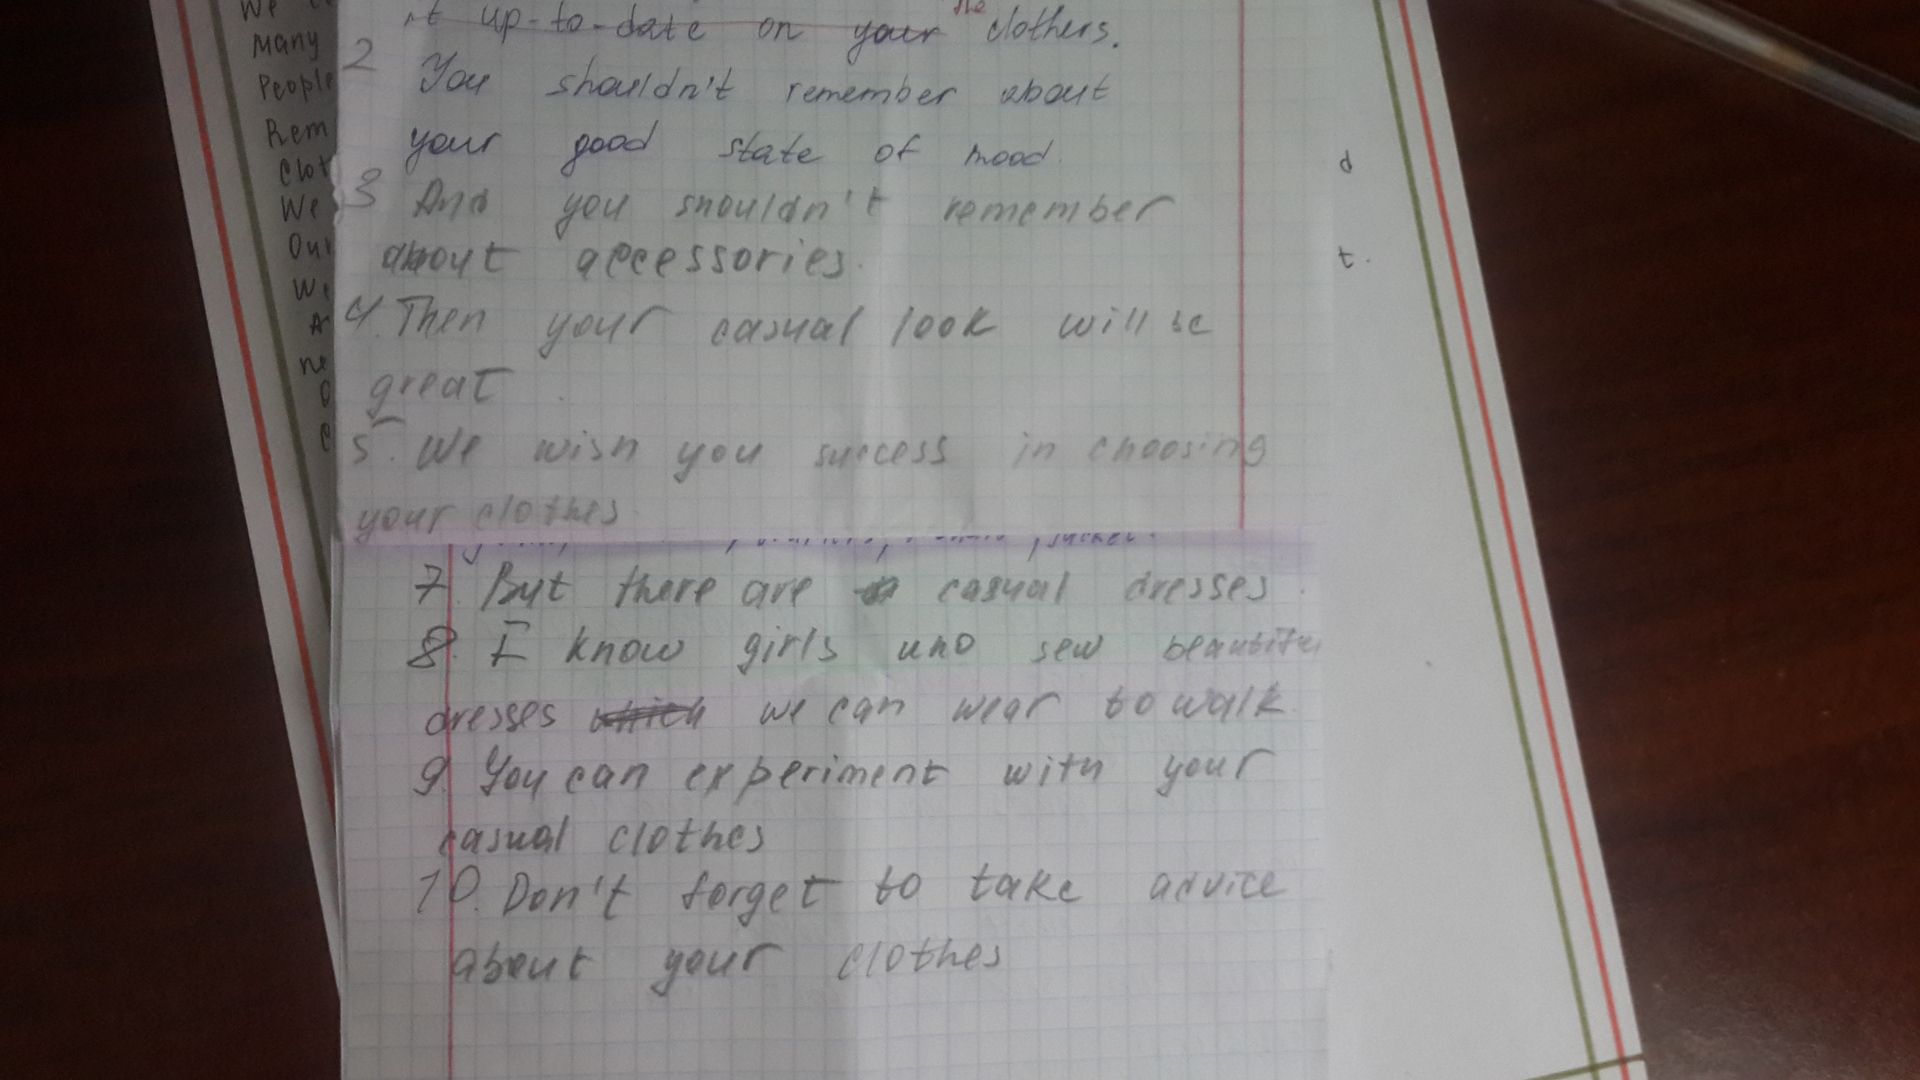 We
Many
People
Rem
Clot
We
Our
We
A
ne
it up-to-date on your the clothers.
2 You shouldn't remember about
your good state of mood.
3 And you shouldn't remember
about accessories.
4. Then your casual look will be
great.
5. We wish you success in choosing
your clothes
d
t.
7. But there are casual dresses.
8. I know girls who sew beautiful
dresses which we can wear to walk.
9. You can experiment with your
casual clothes
10. Don't forget to take advice
about your clothes